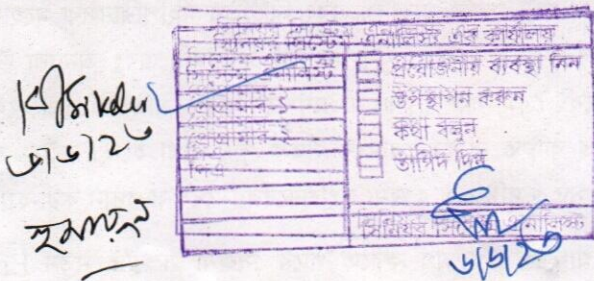 সিনিয়র সিস্টেম এনালিস্ট এর কার্যালয়
সিস্টেম এনালিস্ট
প্রোগ্রামার-১
প্রোগ্রামার-২
পিএ
প্রয়োজনীয় ব্যবস্থা নিন
উপস্থাপন করুন
কথা বলুন
তাগিদ দিন
সিনিয়র সিস্টেম এনালিস্ট
৬/৬/২৩
৬/৬/২৩